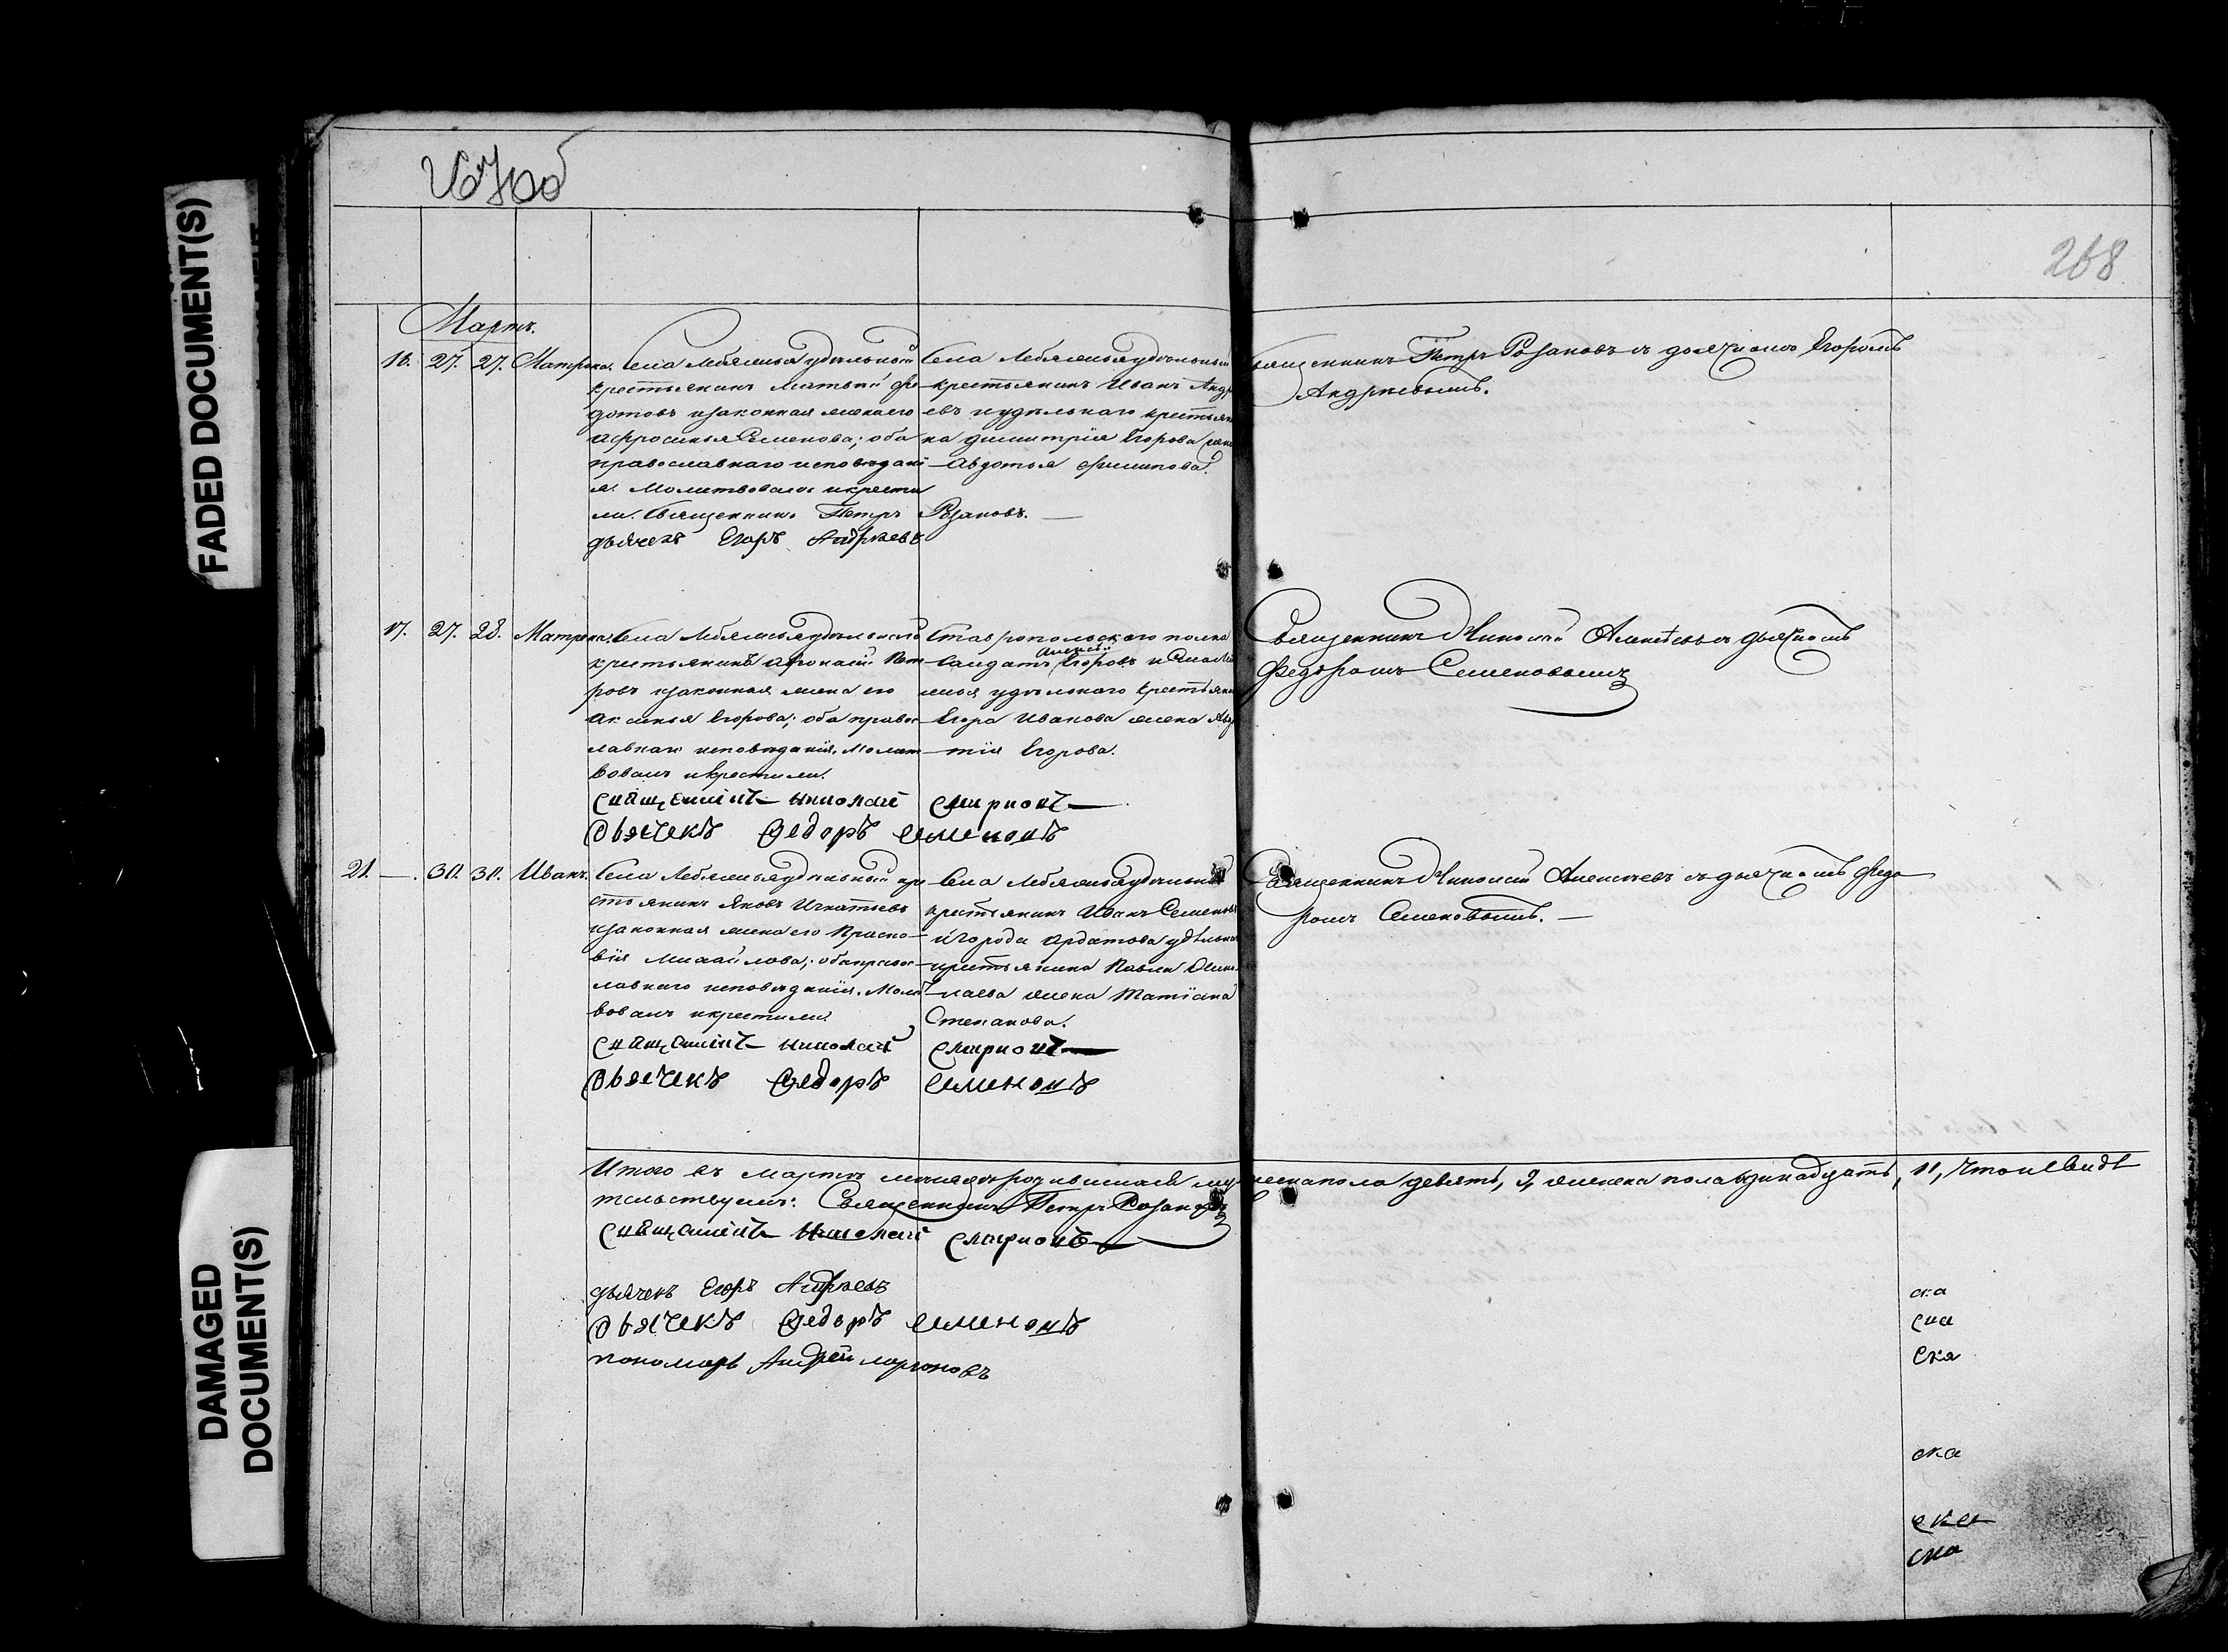 FADED DOCUMENT(S)
DAMAGED DOCUMENT(S)
267об
268
Мартъ.
16. 27. 27. Матрона. Села Лебяжья удѣльный
крестьянинъ Матвѣй Фе-
дотовъ и законная жена его
Афросинья Семенова; оба
православнаго исповѣдані-
я. Молитвовалъ и крести
ли. Священникъ Петръ Розановъ.
дьячекъ Егоръ Андреевъ
Села Лебяжья удѣльный
крестьянинъ Иванъ Андр
евъ и удѣльнаго крестьяни
на Димитрія Егорова жена
Авдотья Филипова.
Священникъ Петръ Розановъ съ дьячкомъ Егоромъ
Андреевымъ.
17. 27. 28. Матрона. Села Лебяжья удѣльный
крестьянинъ Афонасій Пет
ровъ и законная жена его
Аксинья Егорова; оба право
лавнаго исповѣданія. Молит
вовалъ и крестили.
священникъ Николай Смирновъ
дьячекъ Федоръ Семеновъ
Ставропольскаго полка
Солдатъ Алексѣй Егоровъ и Села Леб
яжья удѣльнаго крестьяни
Егора Иванова жена Авдо
тія Егорова.
Священникъ Николай Алексѣевъ съ дьячкомъ
Федоромъ Семеновымъ
21. —. 30. 30. Иванъ. Села Лебяжья удѣльный кре
стьянинъ Яковъ Игнатьевъ
и законная жена его Праско-
вія Михайлова; оба правос
лавнаго исповѣданія. Молит
вовалъ и крестили.
священникъ Николай Смирновъ
дьячекъ Федоръ Семеновъ
Села Лебяжья удѣльный
крестьянинъ Иванъ Семеновъ
и города Ардатова удѣльна
крестьянина Павла
лаева жена Татіана
Степанова.
Священникъ Николай Алексѣевъ съ дьячкомъ Федо
ромъ Семеновымъ.
Итого въ мартѣ мѣсяцѣ родившихся мужеска пола девять, 9, женска пола одинадцать, 11, Что и свидѣ
тельствуемъ: Священникъ Петръ Розановъ
священникъ Николай Смирновъ
дьячекъ Егоръ Андреевъ
дьячекъ Федоръ Семеновъ
пономарь Андрей Ларионовъ
ска
ска
ска
ска
ска
ска